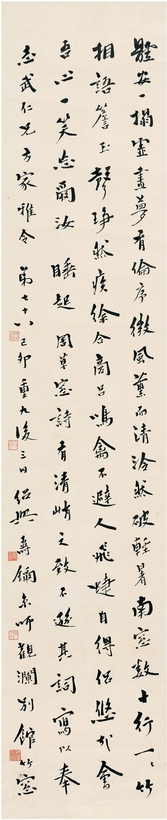 體安一榻靈晝夢有倫序微風薰而清泠然破軽暑南窓數十行一一竹
相語簷玉聲琤然疾徐合商呂鳴禽不避人飛捷自得侶悠哉會
吾心一笑忘爾汝 睡起 周草窓詩有清峭之致不遜其詞寫以奉
志武仁兄方家雅令 弟七十八己卯重九後三日 壽 京 聽觀瀾別館竹窓